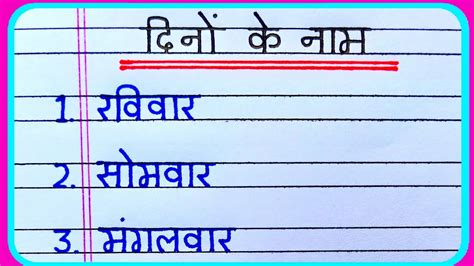 दिनों के नाम
1. रविवार
2. सोमवार
3. मंगलवार